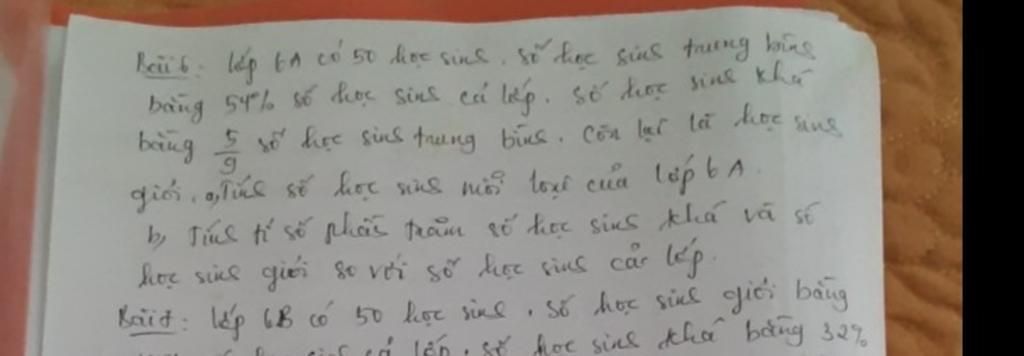 Bài 6: Lớp 6A có 50 học sinh. Số học sinh trung bình
bằng 54% số học sinh cả lớp. Số học sinh khá
bằng 5/9 số học sinh trung bình. Còn lại là học sinh
giỏi. a, Tính số học sinh mỗi loại của lớp 6A.
b, Tính tỉ số phần trăm số học sinh khá và số
học sinh giỏi so với số học sinh cả lớp.
Bài 7: Lớp 6B có 50 học sinh. Số học sinh giỏi bằng
học sinh cả lớp. Số học sinh khá bằng 32%